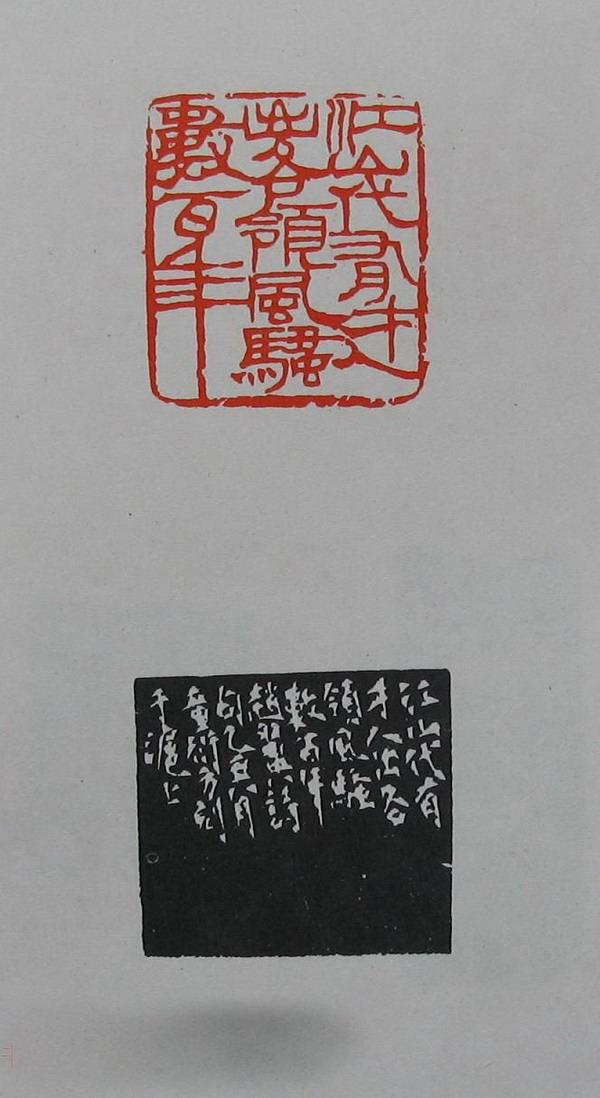 江山代有才人
出各領風騷
數百年
江山代有
才人出各
領風騷
數百年
趙翼詩
句乙亥八月
童衍方刻
于滬上